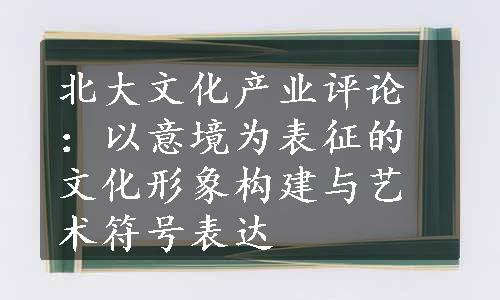 北大文化产业评论
：以意境为表征的
文化形象构建与艺
术符号表达